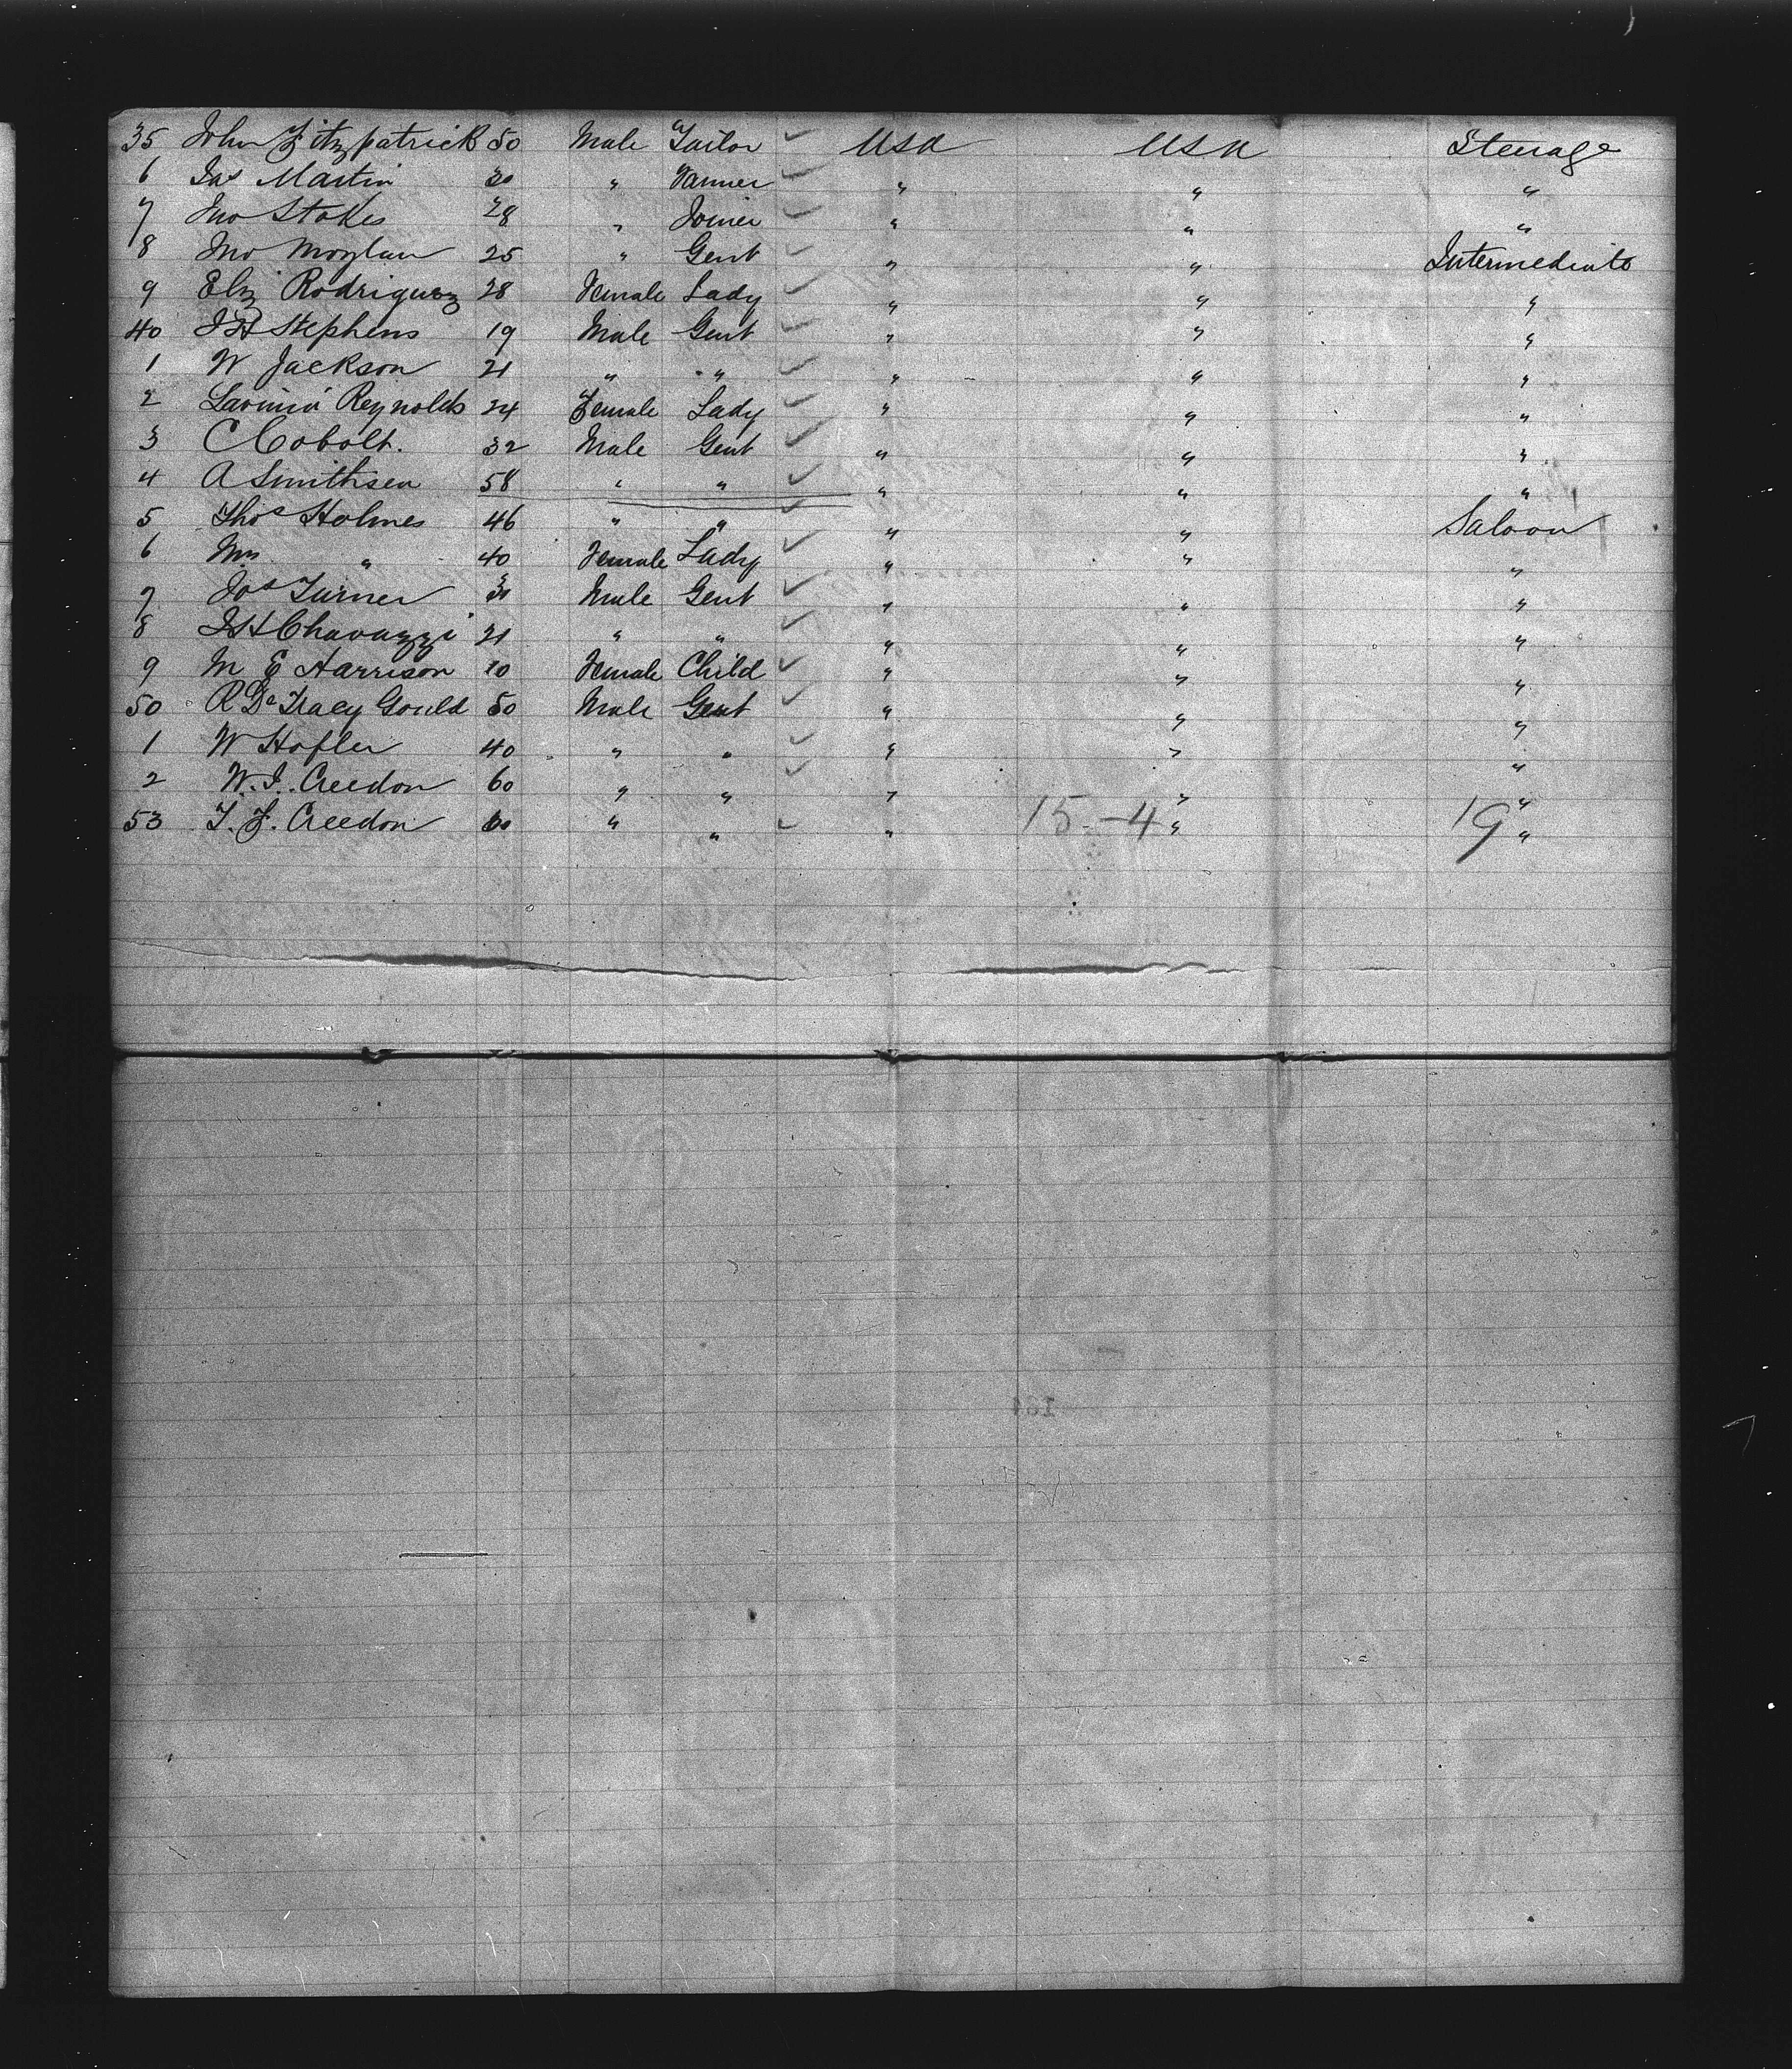 35 John Fitzpatrick 50 Male Tailor ✓ USA USA Steerage
6 Jas Martin 30 " Farmer ✓ " " "
7 Jno Stokes 28 " Joiner ✓ " " "
8 Jno Moylan 25 " Gent ✓ " " Intermediate
9 Eliz Rodriguez 28 Female Lady ✓ " " "
40 J H Stephens 19 Male Gent ✓ " " "
1 W Jackson 21 " " ✓ " " "
2 Lavinia Reynolds 24 Female Lady ✓ " " "
3 C Cobolt. 32 Male Gent ✓ " " "
4 A Smithsen 58 " " ✓ " " "
5 Thos Holmes 46 " " ✓ " " Saloon
6 Mrs " 40 Female Lady ✓ " " "
7 Jos Turner Male Gent ✓ " " "
8 J H Chavazzi 21 " " ✓ " " "
9 M E Harrison 10 Female Child ✓ " " "
50 R De Tracy Gould 50 Male Gent ✓ " " "
1 W Hofler 40 " " ✓ " " "
2 W. J. Creedon 60 " " ✓ " " "
53 T. F. Creedon " " ✓ " 15-4 " 19 "